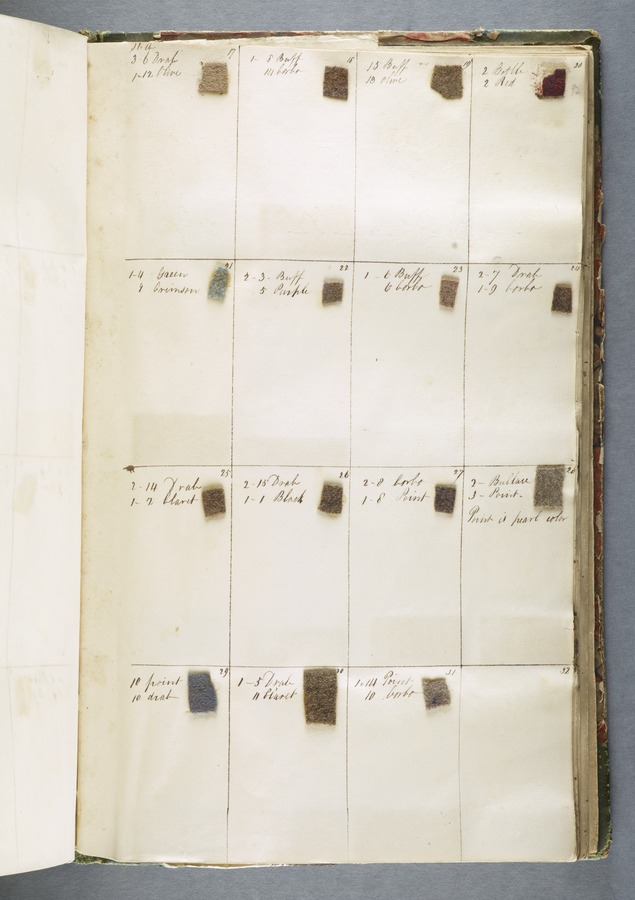 17
3-6 Drab
1-12 Olive
18
1- 8 Buff
14 Corbo
19
15 Buff
13 Olive
20
2 Bottle
2 Red
21
1-4 Green
9 Crimson
22
2-3- Buff
5 Purple
23
1-6 Buff
6 Corbo
24
2-7 Drab
1-9 Corbo
25
2-14 Drab
1-2 Claret
26
2-15 Drab
1-1 Black
27
2-8 Corbo
1-8 Point
28
3-
3- Point-
Point is pearl color
29
10 point
10 drab
30
1-5 Drab
11 Claret
31
1-14 Point
10 Corbo
32